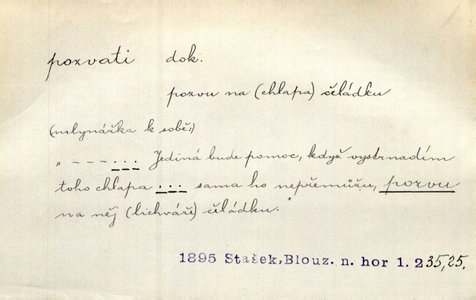 pozvati dok.
pozvu na (chlapa) čeládku
(mlynářka k sobě:)
" - - - ... Jediná bude pomoc, když vystrnadím
toho chlapa ... sama ho nepřemůžu, pozvu
na něj (lichváře) čeládku."
1895 Stašek, Blouz. n. hor 1. 235,25.